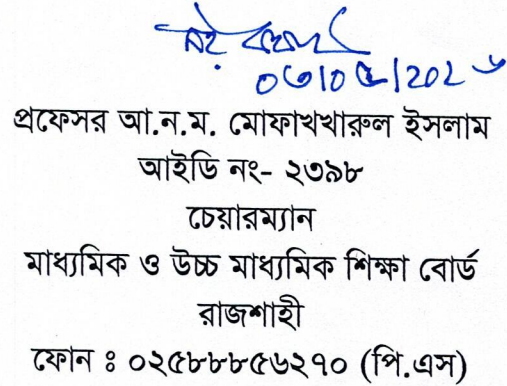 ০৩/০৫/২০২৬
প্রফেসর আ.ন.ম. মোফাখখারুল ইসলাম
আইডি নং- ২৩৯৮
চেয়ারম্যান
মাধ্যমিক ও উচ্চ মাধ্যমিক শিক্ষা বোর্ড
রাজশাহী
ফোন ঃ ০২৫৮৮৮৫৬২৭০ (পি.এস)